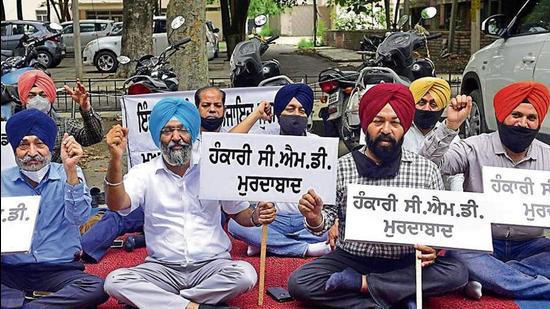 ਹੰਕਾਰੀ ਸੀ.ਐਮ.ਡੀ.
ਮੁਰਦਾਬਾਦ
ਹੰਕਾਰੀ ਸੀ.ਐਮ.ਡੀ.
ਮੁਰਦਾਬਾਦ
ਹੰਕਾਰੀ ਸੀ.ਐਮ.ਡੀ.
ਮੁਰਦਾਬਾਦ
.ਡੀ.